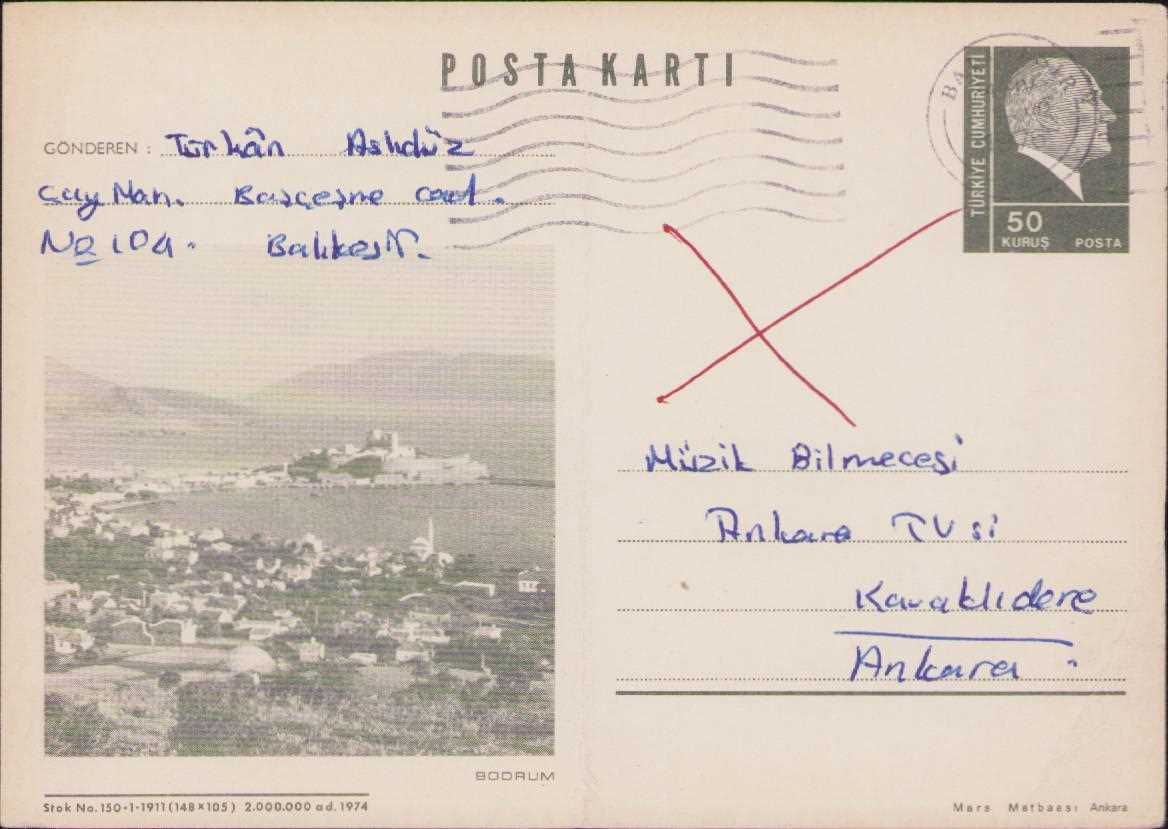 POSTA KARTI
GÖNDEREN : Türkân
Çay Mah. Başçeşme cad.
No 104. Balıkesir.
TÜRKİYE CUMHURİYETİ
50
KURUŞ POSTA
Müzik Bilmecesi
Ankara TV si
Kavaklıdere
Ankara.
BODRUM
Stok No. 150-1-1911 (148x105) 2.000.000 ad. 1974
Mars Matbaası Ankara